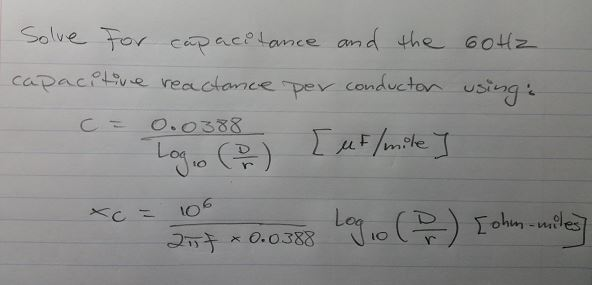 Solve For capacitance and the 60Hz
capacitive reactance per conductor using:
C = 0.0388 / Log10 (D/r) [μF/mile]
xc = 10^6 / 2πf × 0.0388 Log10 (D/r) [ohm-miles]